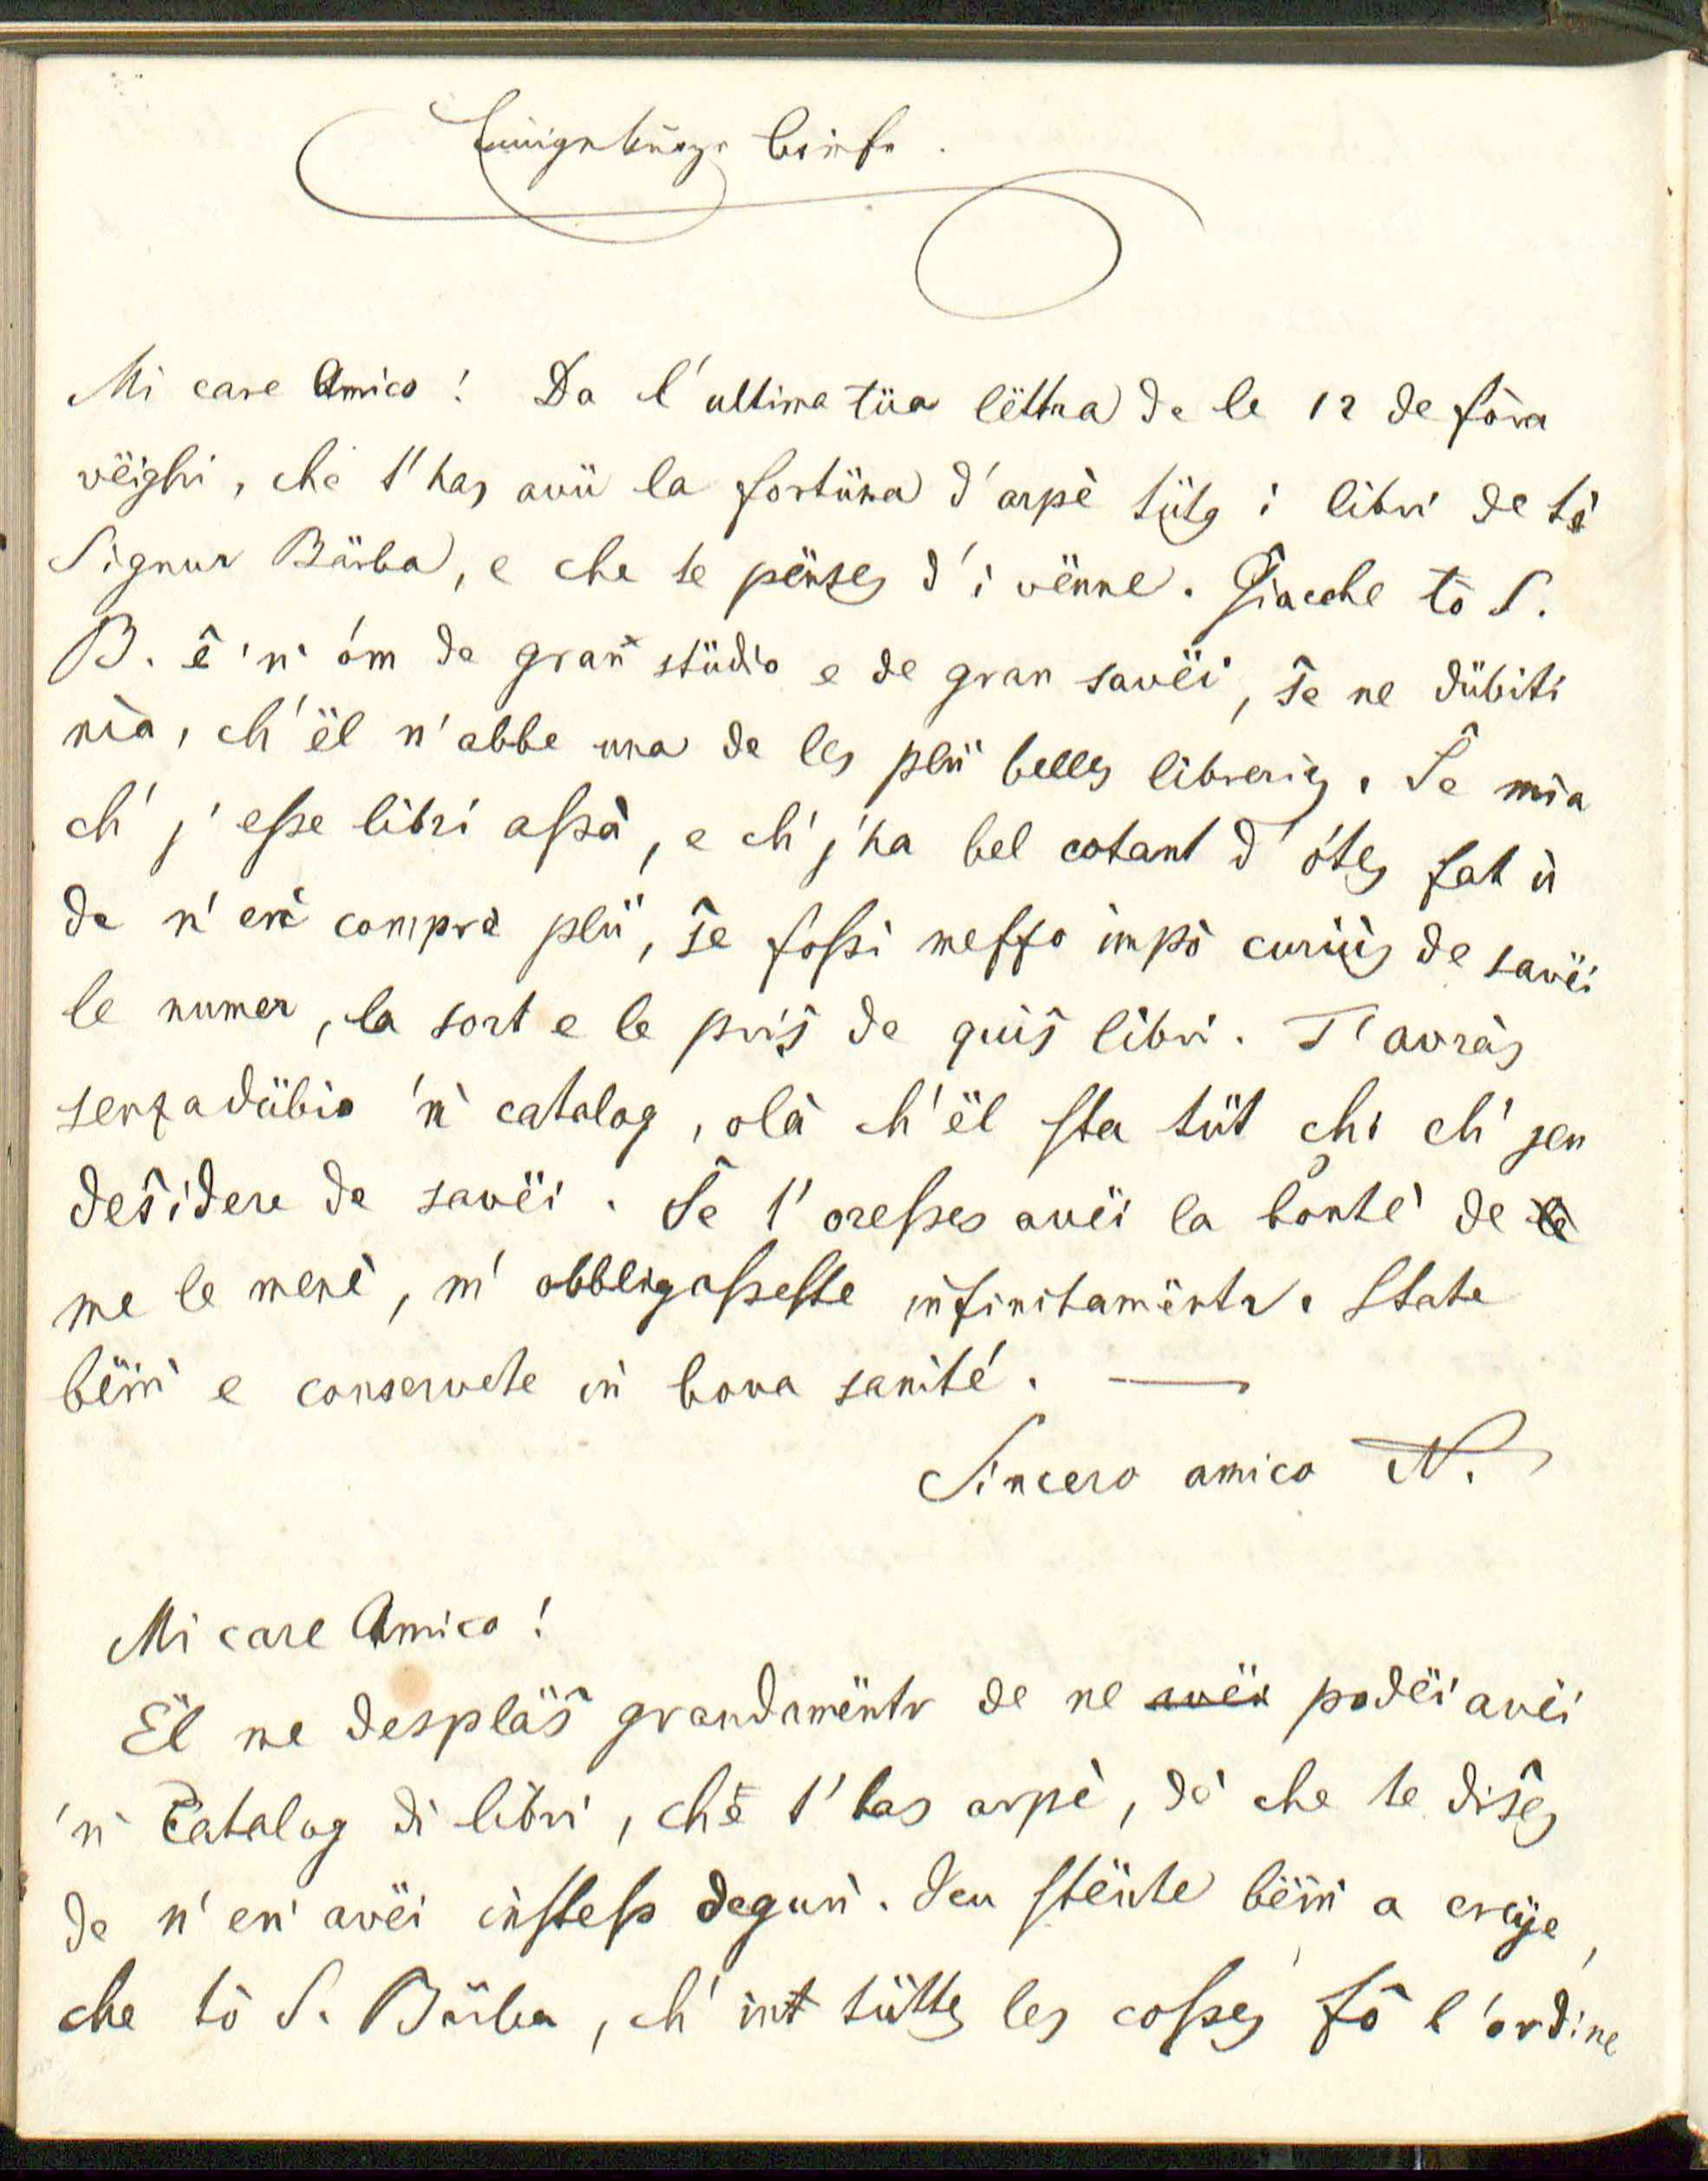 Mi care Amico! Da l'ultima tüa lëttra de le 12 de fòra
vëighi, che t'has avü la fortüna d'arpè tütg i libri de tò
Signur Bärba, e che te pënses d'i vënne. Giacche tò S.
B. ê 'ǹ óm de gran stüdio e de gran savëi, ŝe ne dübiti
nìa, ch'ël n'abbe una de les plü belles libreries. Ŝe mìa
ch' j' eſse libri aſsà, e ch' j'ha bel cotant d'ótes fat ù
de n'eǹ comprè plü, ŝe foſsi meſfo impò curiùs de savëi
le numer, la sort e le priŝ de quiŝ libri. T'avràs
senzadübio 'ǹ catalog, olà ch'ël sta tüt chi ch' jeu
deŝidere de savëi. Ŝe t'oreſses avëi la bontè de
me le menè, m'obbligaſseste infinitamëntr. State
bëiǹ e conservete iǹ bona sanité. —
Sincero amico N.
Mi care Amico!
Ël me desplàŝ grandamëntr de ne avëi podëi avëi
'ǹ Catalog di libri, chë t'has arpè, dè che te diŝes
de n'eǹ avëi iǹsteſs deguǹ. Jeu stënte bëiǹ a creje,
che tò S. Bärba, ch' int tüttes les coſses fô l'ordine